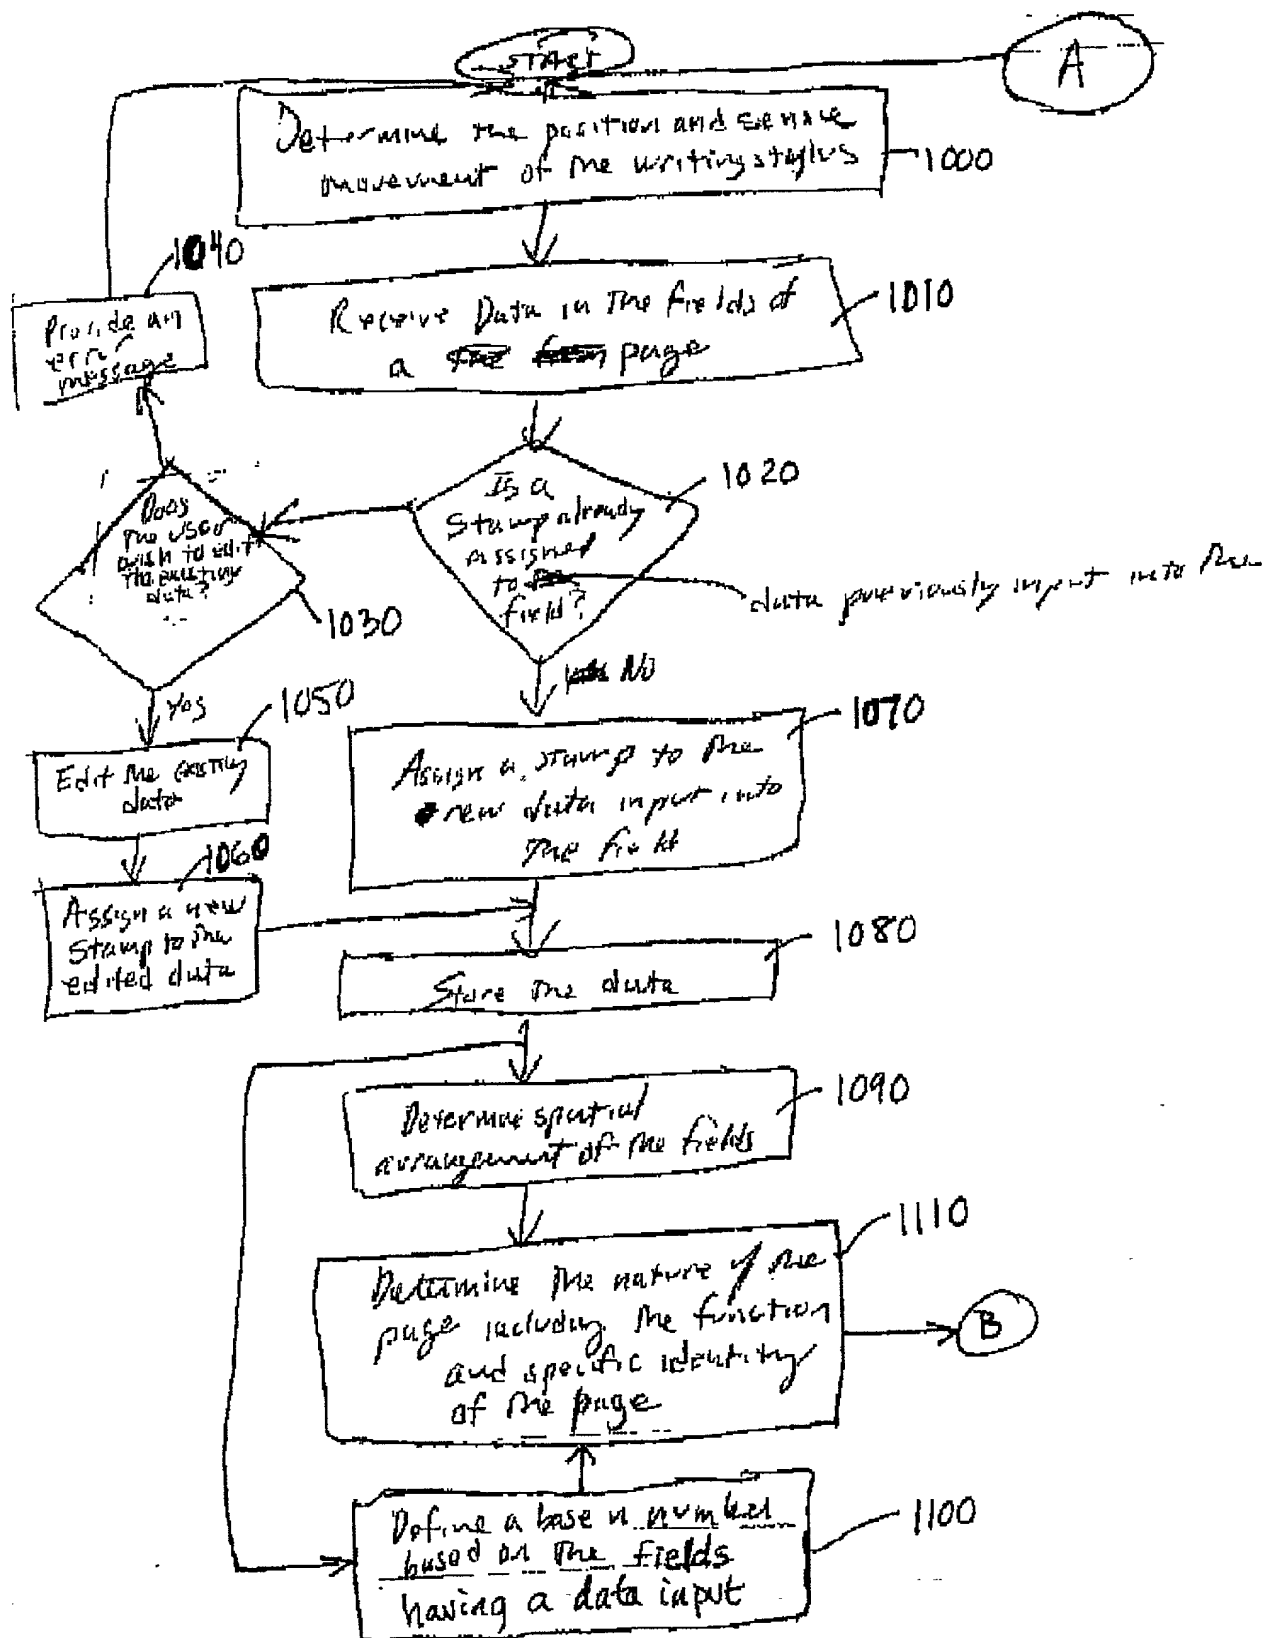 START
A
Determine the position and sense
movement of the writing stylus
1000
1040
Provide an
error
message
Receive Data in the fields of
a page
1010
Is a
Stamp already
assigned
to
field?
1020
data previously input into the
Does
the user
wish to edit
the existing
data?
1030
No
Yes
1050
Edit the existing
data
1060
Assign a new
Stamp to the
edited data
1070
Assign a stamp to the
new data input into
the field
1080
Store the data
1090
Determine spatial
arrangement of the fields
1110
Determine the nature of the
page including the function
and specific identity
of the page
B
1100
Define a base n number
based on the fields
having a data input